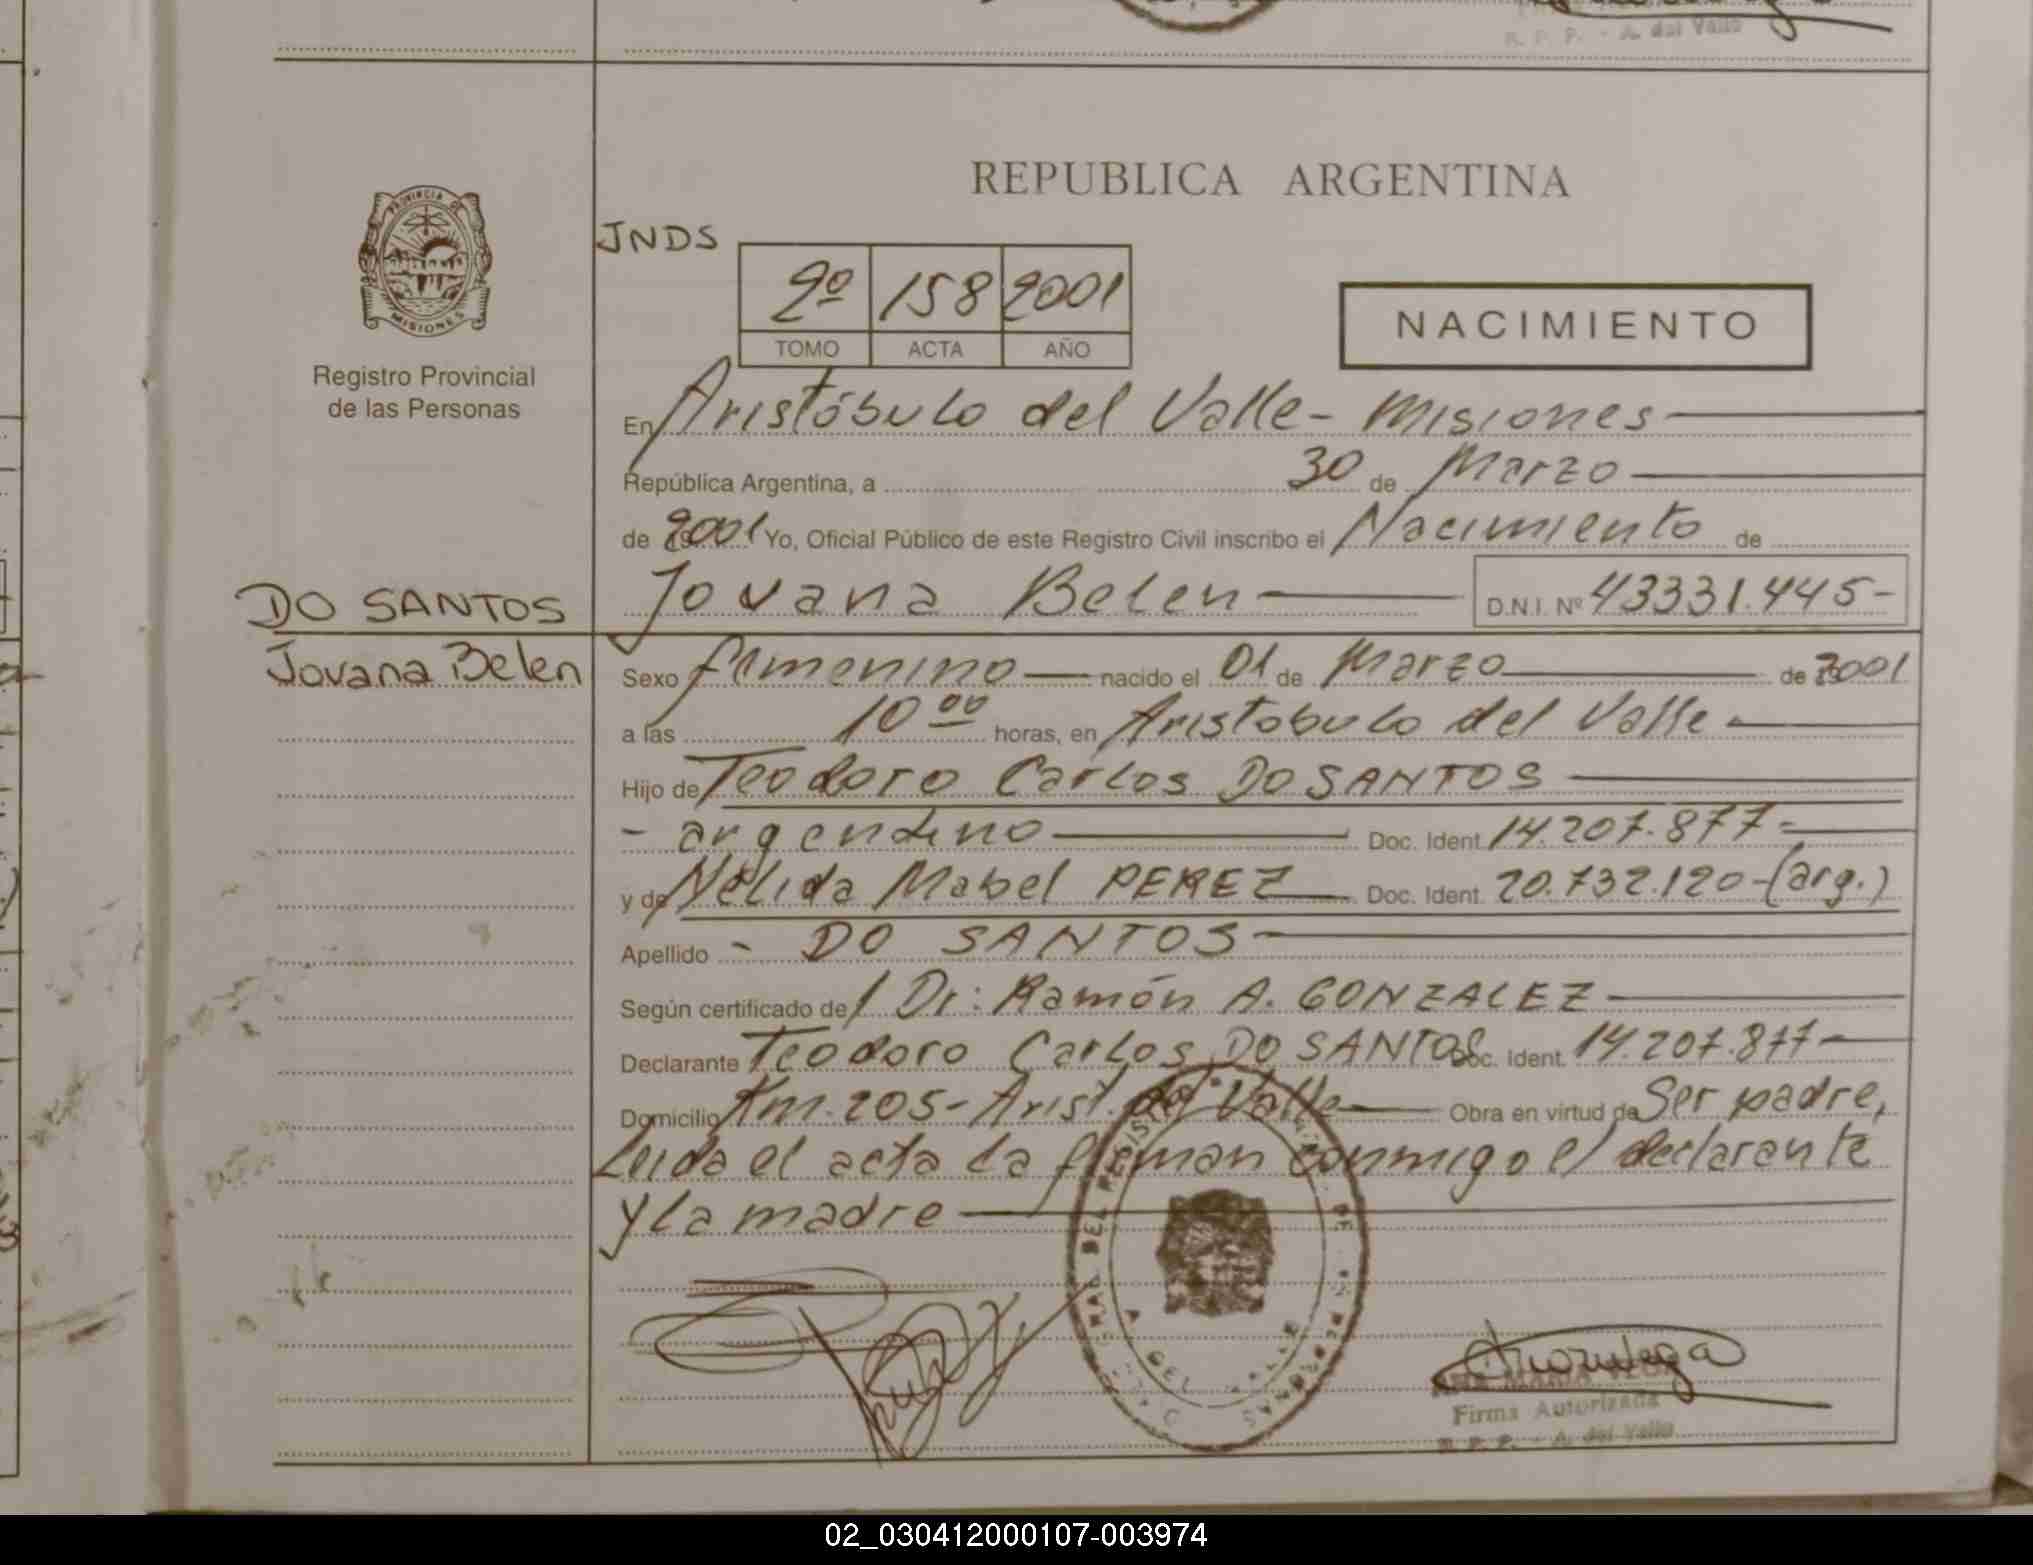 R. P. P. - A. del Valle
REPUBLICA ARGENTINA
PROVINCIA DE
MISIONES
Registro Provincial
de las Personas
JNDS
2º 158 2001
TOMO ACTA AÑO
NACIMIENTO
En Aristóbulo del Valle - Misiones
República Argentina, a 30 de Marzo
de 2001 Yo, Oficial Público de este Registro Civil inscribo el Nacimiento de
Jovana Belen D.N.I. Nº 43331.445-
DO SANTOS
Jovana Belen
Sexo femenino nacido el 01 de Marzo de 2001
a las 10 00 horas, en Aristobulo del Valle
Hijo de Teodoro Carlos DO SANTOS
- argentino Doc. Ident. 14.207.877-
y de Nélida Mabel PEREZ Doc. Ident. 20.732.120-(arg.)
Apellido - DO SANTOS
Según certificado de Dr: Ramón A. GONZALEZ
Declarante Teodoro Carlos DO SANTOS Doc. Ident. 14.207.877-
Domicilio Km. 205- Arist. del Valle Obra en virtud de Ser padre,
Leida el acta la firman conmigo el declarante
y la madre
Firma Autorizada
R. P. P. - A. del Valle
02_030412000107-003974